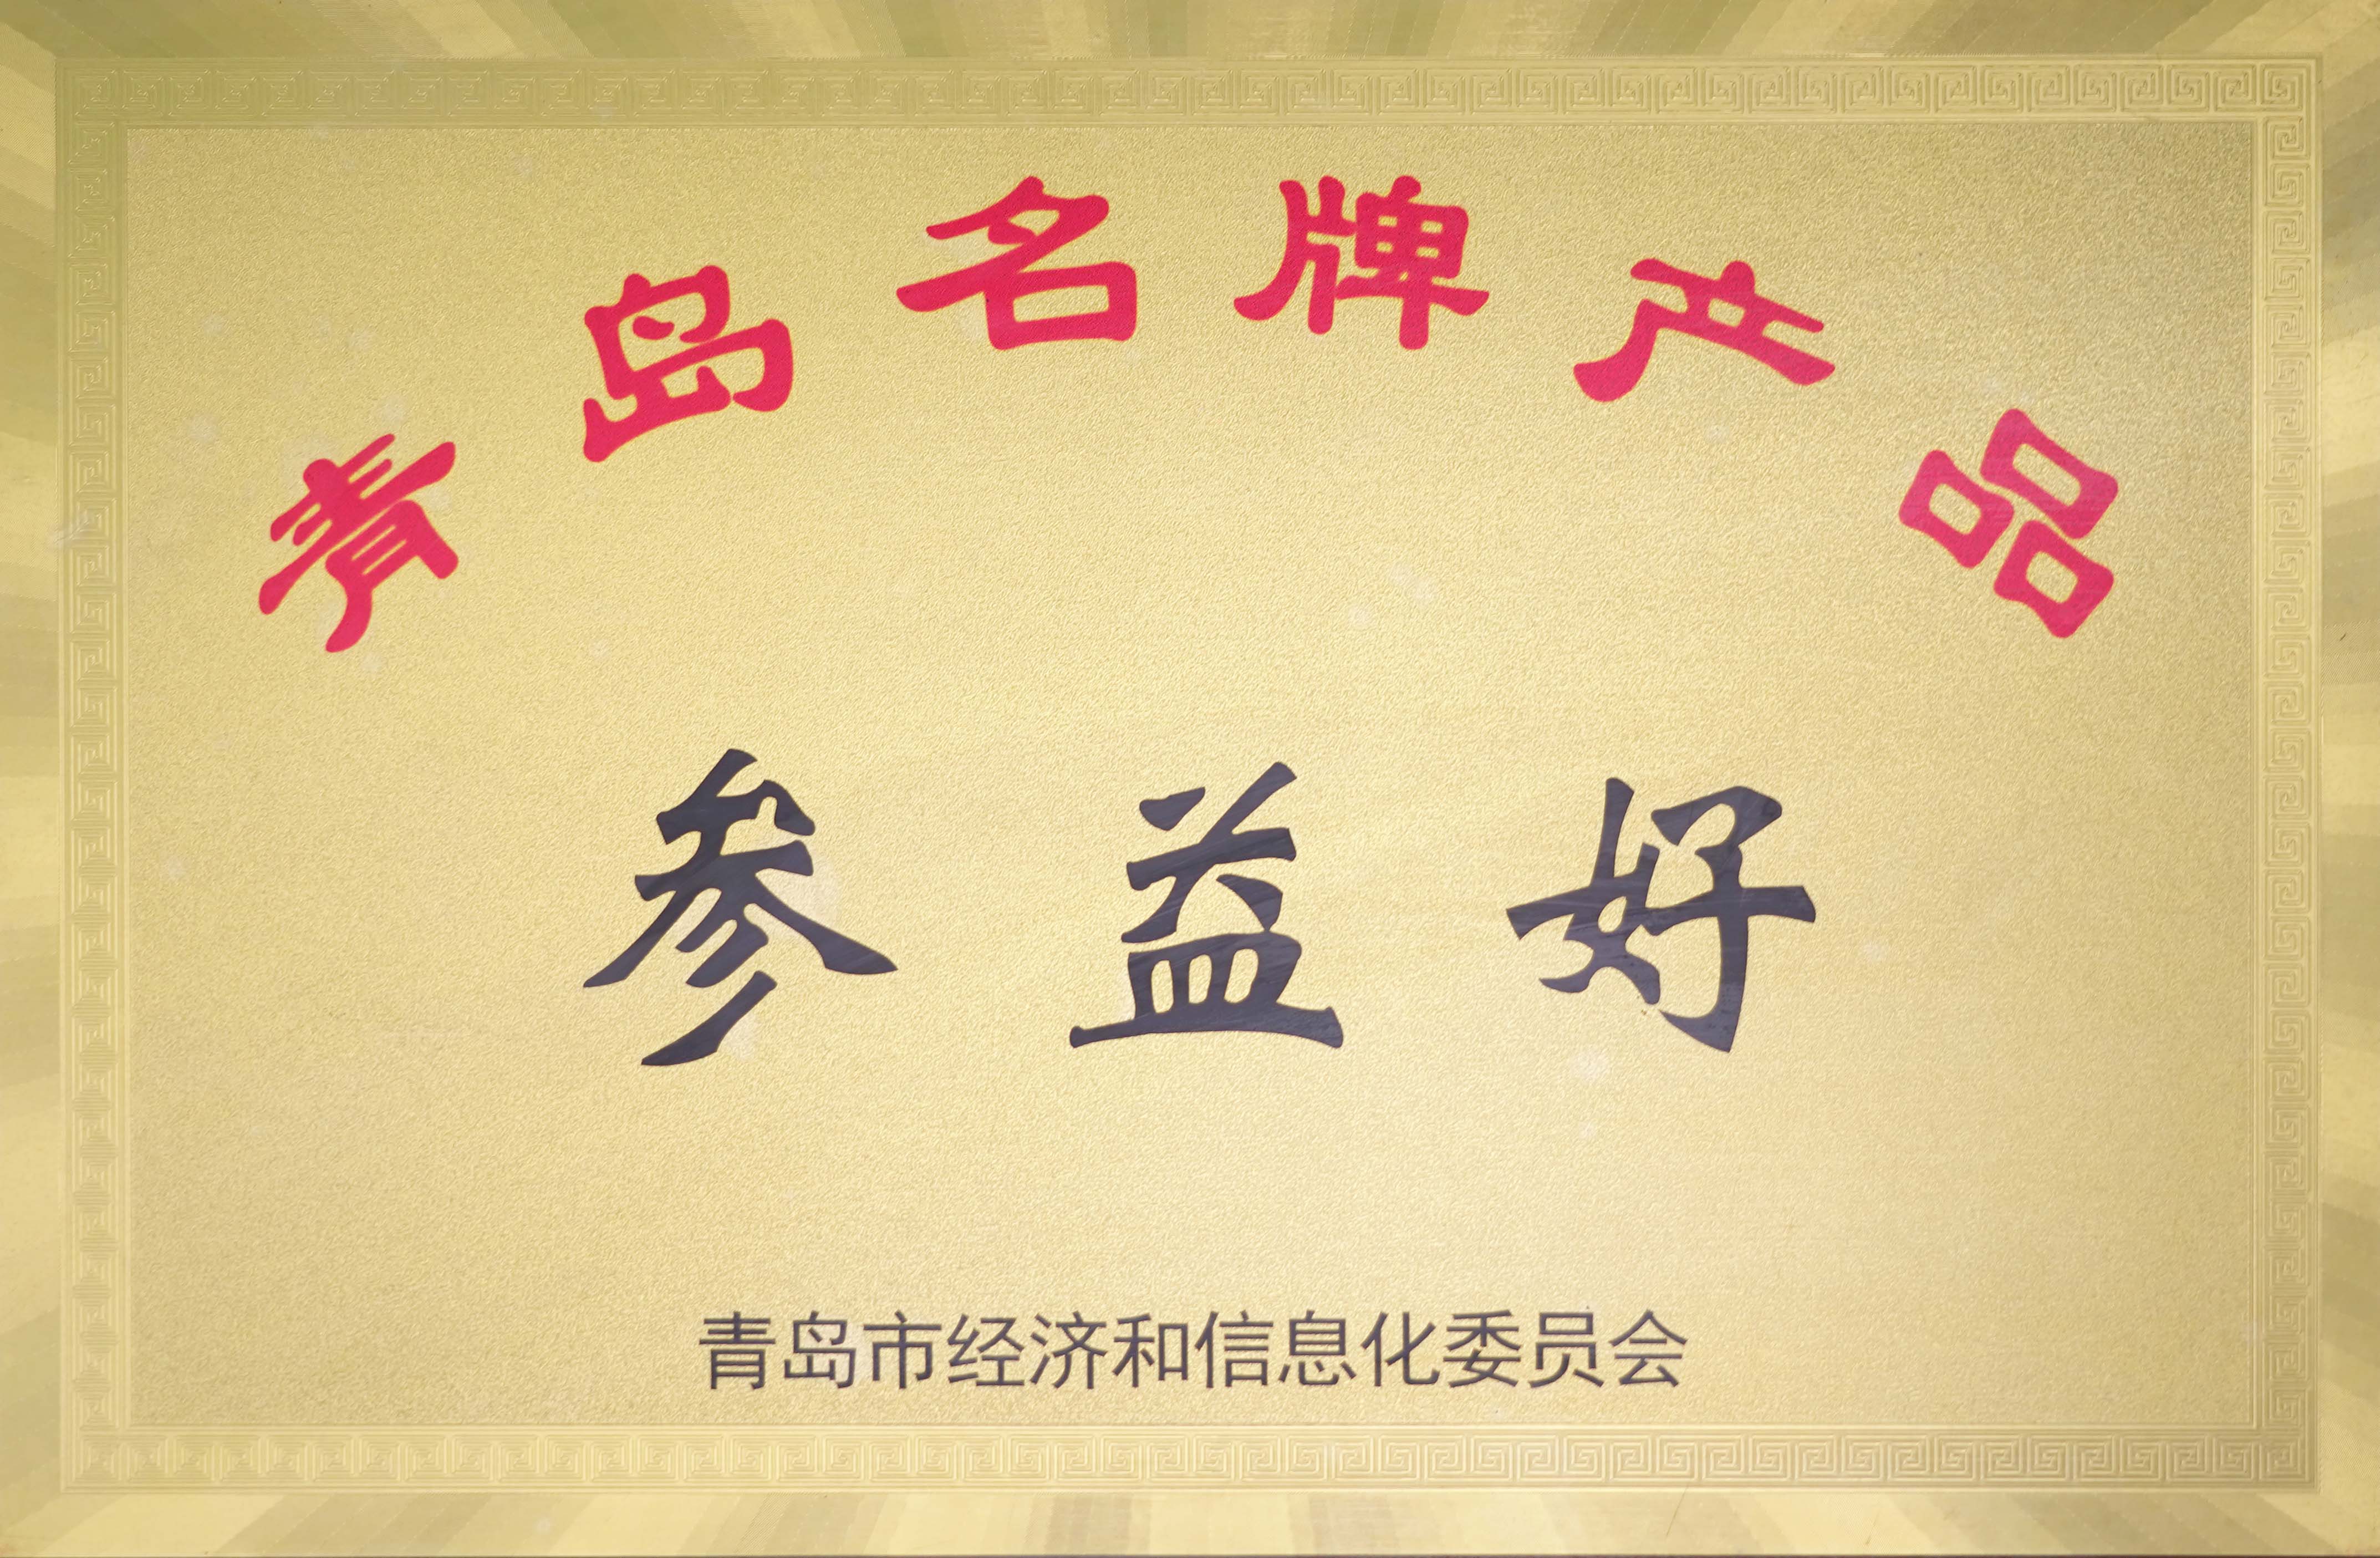 青岛名牌产品
参益好
青岛市经济和信息化委员会